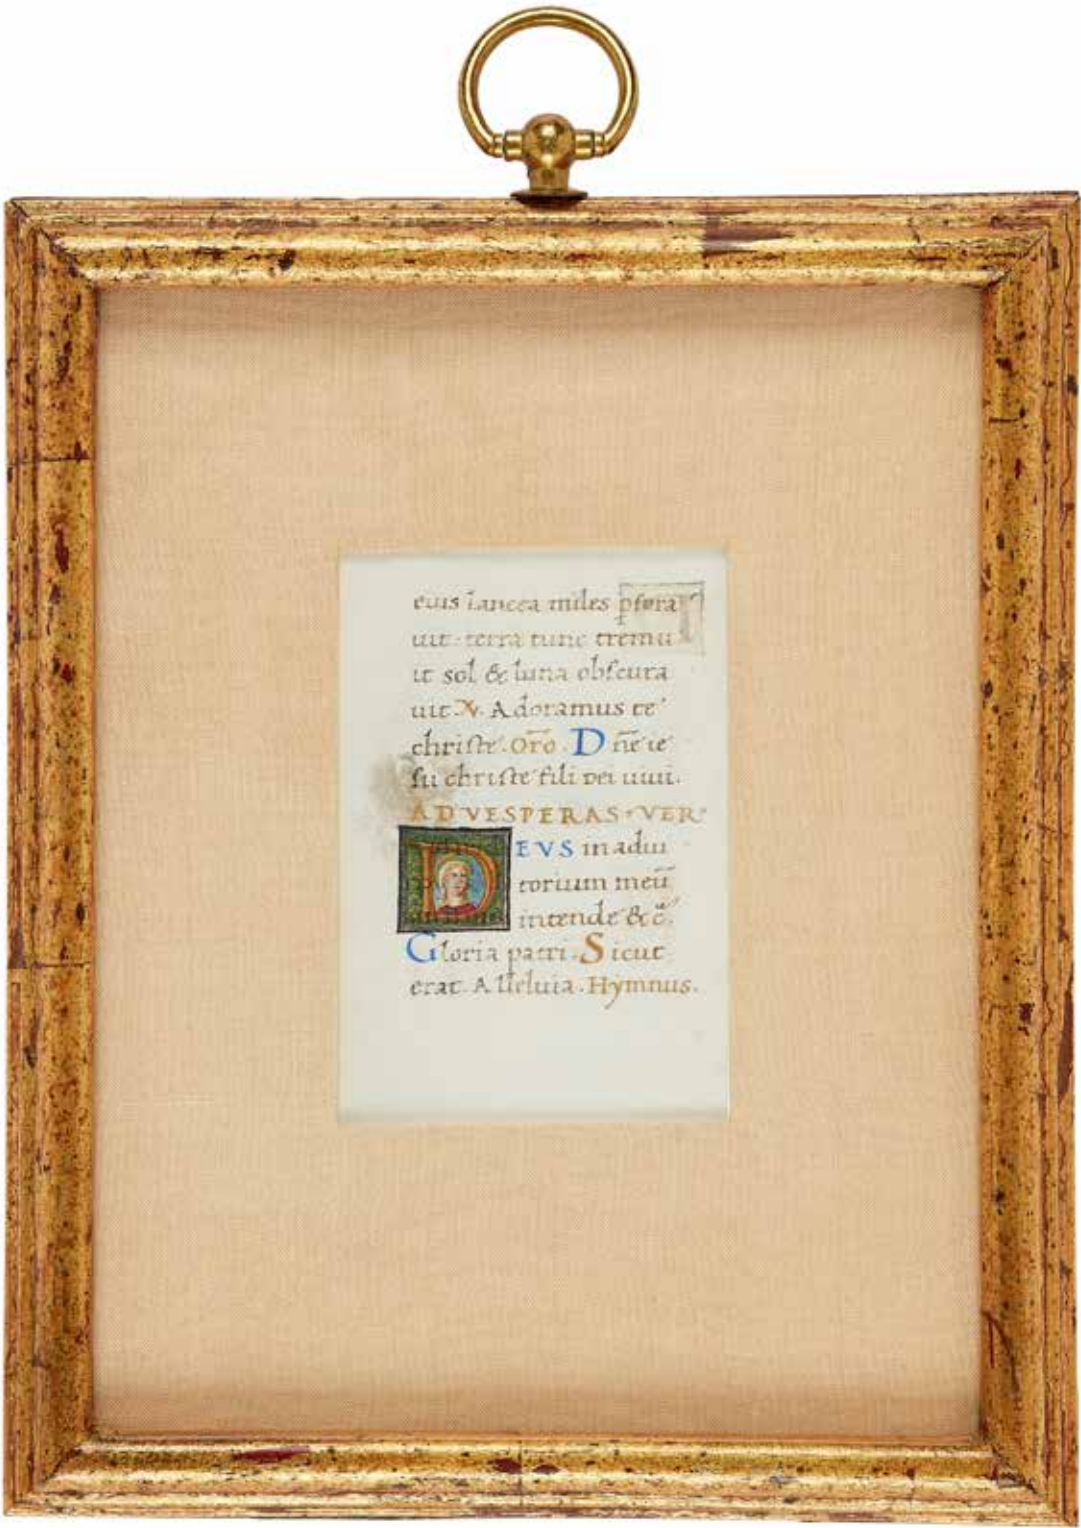 eius lancea miles ꝑfora
uit· terra tunc tremu
it sol & luna obscura
uit ꝟ· Adoramus te
christe· Or̄o· Dn̄e ie
su christe fili dei uiui·
AD VESPERAS· VER·
DEVS in adiu
torium meū
intende & c̄·
Gloria patri· Sicut
erat· Alleluia· Hymnus·